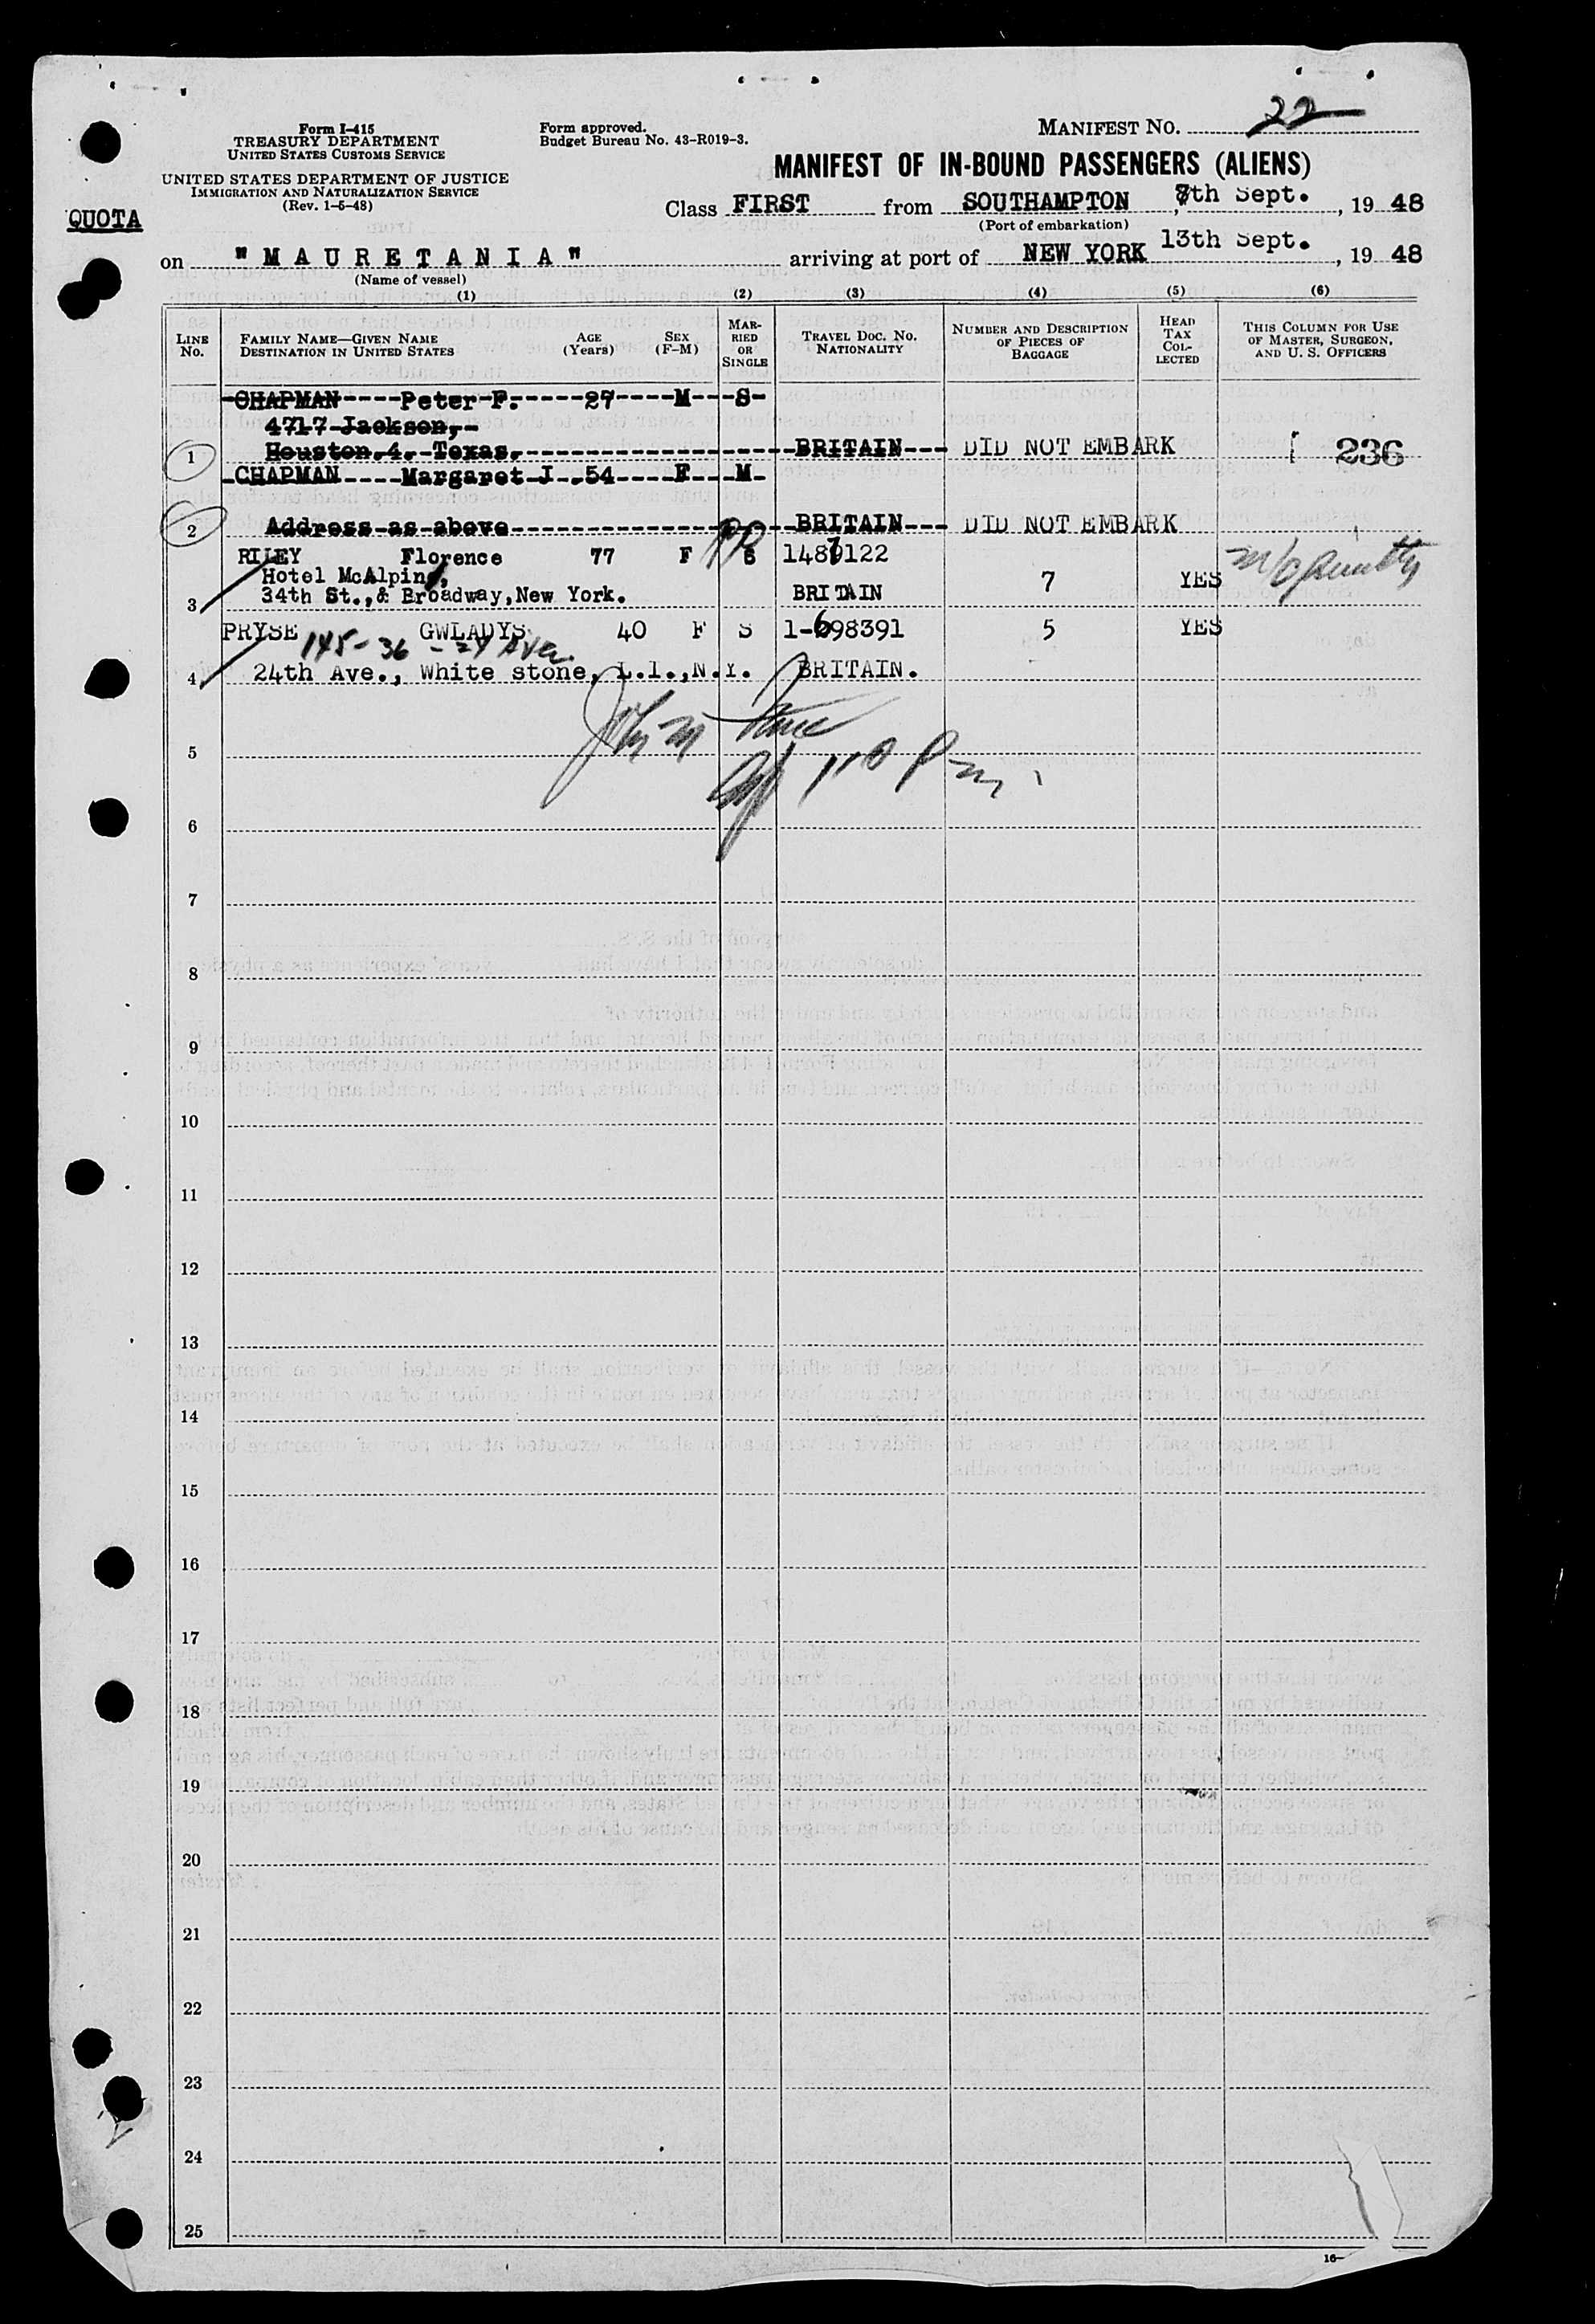 Form I-415
TREASURY DEPARTMENT
UNITED STATES CUSTOMS SERVICE
UNITED STATES DEPARTMENT OF JUSTICE
IMMIGRATION AND NATURALIZATION SERVICE
(Rev. 1-5-48)
Form approved.
Budget Bureau No. 43-R019-3.
MANIFEST NO. 22
MANIFEST OF IN-BOUND PASSENGERS (ALIENS)
QUOTA
Class FIRST from SOUTHAMPTON, 7th Sept., 19 48
(Port of embarkation)
on "MAURETANIA" arriving at port of NEW YORK 13th Sept., 19 48
(Name of vessel)
(1) (2) (3) (4) (5) (6)
LINE No. FAMILY NAME—GIVEN NAME DESTINATION IN UNITED STATES AGE (Years) SEX (F-M) MARRIED OR SINGLE TRAVEL DOC. NO. NATIONALITY NUMBER AND DESCRIPTION OF PIECES OF BAGGAGE HEAD TAX COLLECTED THIS COLUMN FOR USE OF MASTER, SURGEON, AND U. S. OFFICERS
CHAPMAN Peter F. 27 M S
4717 Jackson,
1 Houston.4. Texas. BRITAIN DID NOT EMBARK 236
CHAPMAN Margaret J. 54 F M
2 Address as above BRITAIN DID NOT EMBARK
RILEY Florence 77 F S 1487122
Hotel McAlpin,
3 34th St.,& Broadway,New York. BRITAIN 7 YES
PRYSE GWLADYS 40 F S 1-698391 5 YES
145-36 - 24 Ave
4 24th Ave., White stone, L.I.,N.Y. BRITAIN.
John M
5
6
7
8
9
10
11
12
13
14
15
16
17
18
19
20
21
22
23
24
25
16—